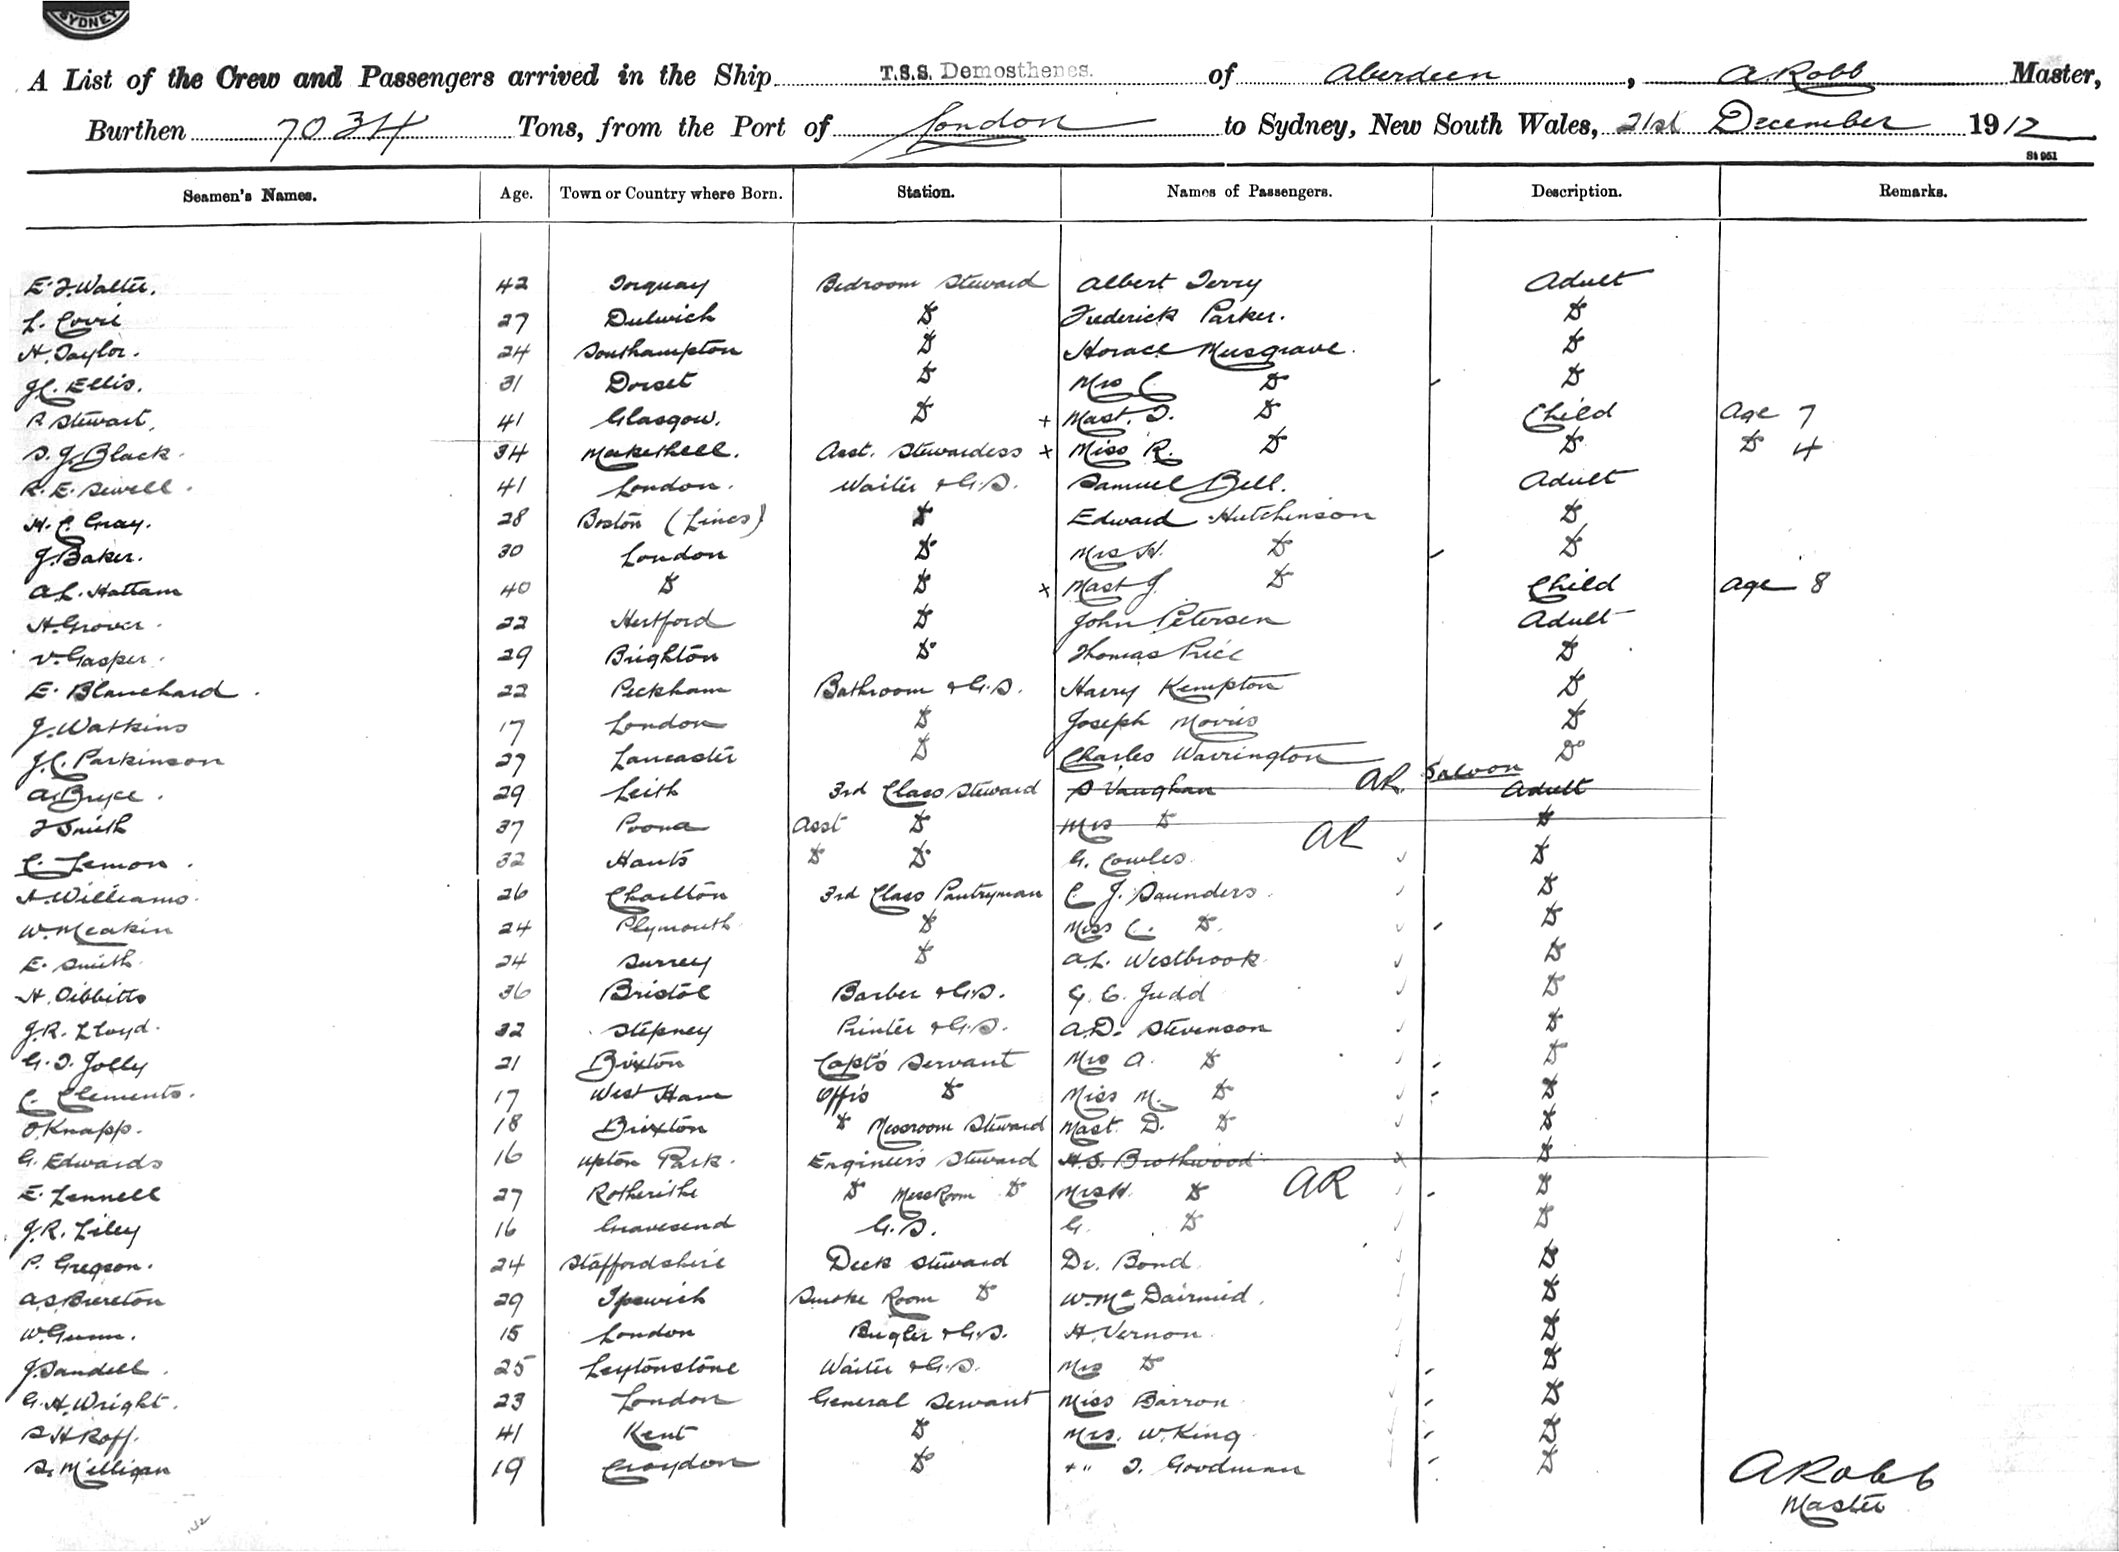 SYDNEY
A List of the Crew and Passengers arrived in the Ship T.S.S. Demosthenes. of Aberdeen, A. Robb Master,
Burthen 7034 Tons, from the Port of London to Sydney, New South Wales, 21st December 1912
St 951
Seamen's Names. Age. Town or Country where Born. Station. Names of Passengers. Description. Remarks.
E. J. Walter. 42 Torquay Bedroom Steward Albert Terry Adult
L. 27 Dulwich Do Frederick Parker. Do
H. Taylor. 24 Southampton Do Horace Musgrave. Do
J.C. Ellis. 31 Dorset Do Mrs C. Do Do
R Stewart. 41 Glasgow. Do + Mast. T. Do Child Age 7
S. J. Black. 34 Asst. Stewardess x Miss R. Do Do Do 4
R. E. Sewell. 41 London. Waiter & G.S. Samuel Bell. Adult
H. C. Gray. 28 Boston (Lincs) Do Edward Hutchinson Do
J. Baker. 30 London Do Mrs H. Do Do
A.L. Hattam 40 Do Do x Mast J. Do Child Age 8
H. Grover. 22 Hertford Do John Petersen Adult
V. Gasper. 29 Brighton Do Thomas Price Do
E. Blanchard. 22 Peckham Bathroom & G.S. Harry Kempton Do
J. Watkins 17 London Do Joseph Morris Do
J.C. Parkinson 27 Lancaster Do Charles Warrington Do
A. Bryce. 29 Leith 3rd Class Steward S Vaughan AR. Saloon Adult
J Smith 37 Poona Asst Do Mrs Do AR Do
C. Lemon. 32 Hants Do Do G. Cowles. Do
A. Williams. 26 Charlton 3rd Class Pantryman C. J. Saunders. Do
W. Meakin 24 Plymouth Do Miss C. Do. Do
E. Smith. 24 Surrey Do A.L. Westbrook. Do
H. Tibbitts 36 Bristol Barber & G.S. G. E. Judd Do
J.R. Lloyd. 32 Stepney Printer & G.S. A.D. Stevenson Do
G. T. Jolly 21 Brixton Capt's Servant Mrs A. Do Do
C. Clements. 17 West Ham Off's Do Miss M. Do Do
O. Knapp. 18 Brixton Do Messroom Steward Mast. D. Do Do
G. Edwards 16 Upton Park. Engineers Steward H.S. Brothwood x Do
E. Lennell 27 Rotherithe Do MessRoom Do Mrs H. Do AR Do
J.R. Liley 16 Gravesend G.S. G. Do Do
P. Gregson. 24 Staffordshire Deck Steward Dr. Bond. Do
A.S. Brereton 29 Ipswich Smoke Room Do W. McDairmid. Do
W. Gunn. 15 London Bugler & G.S. H. Vernon. Do
J. Sandell. 25 Leytonstone Waiter & G.S. Mrs Do Do
G. H. Wright. 23 London General Servant Miss Barron Do
S H Roff. 41 Kent Do Mrs. W. King. Do
S. Milligan 19 Croydon Do + " T. Goodman Do
A Robb
Master